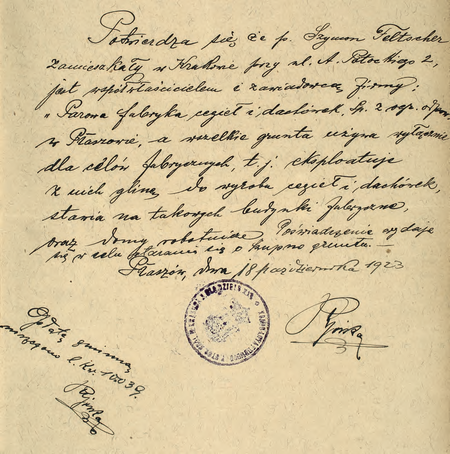 Potwierdza się, że p. Szymon Feltscher
zamieszkały w Krakowie przy ul. A. Potockiego 2,
jest współwłaścicielem i zawiadowcą firmy:
"Parowa fabryka cegieł i dachówek, Sp. z ogr. odpow.
w Płaszowie, a wszelkie grunta używa wyłącznie
dla celów fabrycznych, t. j. eksploatuje
z nich glinę do wyrobu cegieł i dachówek,
stawia na takowych budynki fabryczne,
oraz domy robotnicze. Poświadczenie wydaje
się w celu starania się o kupno gruntu.
Płaszów, dnia 18 października 1923
Opłatę gminną